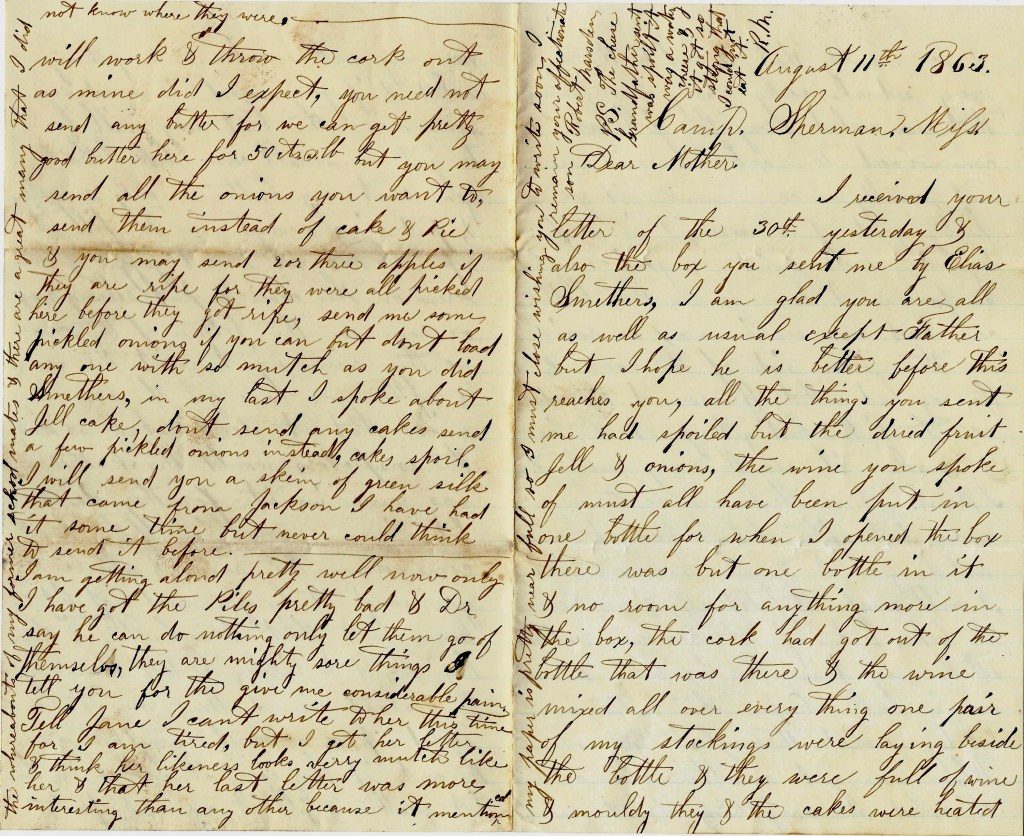 August 11th 1863.
Camp. Sherman, Miss
Dear Mother.
I received your
letter of the 30th yesterday &
also the box you sent me by Elias
Smethers, I am glad you are all
as well as usual except Father
but I hope he is better before this
reaches you, all the things you sent
me had spoiled but the dried fruit
Jell & onions, the wine you spoke
of must all have been put in
one bottle for when I opened the box
there was but one bottle in it
& no room for anything more in
the box, the cork had got out of the
bottle that was there & the wine
mixed all over every thing one pair
of my stockings were laying beside
the bottle & they were full of wine
& mouldy they & the cakes were heated
will work & throw the cork out
as mine did I expect, you need not
send any butter for we can get pretty
good butter here for 50 cts a lb but you may
send all the onions you want to,
send them instead of cake & Pie
& you may send 2 or three apples if
they are ripe for they were all picked
here before they got ripe, send me some
pickled onions if you can but dont load
any one with so mutch as you did
Smethers, in my last I spoke about
Jell cake, dont send any cakes send
a few pickled onions instead, cakes spoil.
I will send you a skein of green silk
that came from Jackson I have had
it some time but never could think
to send it before.
I am getting alond pretty well now only
I have got the Piles pretty bad & Dr
say he can do nothing only let them go of
themselvs, they are mighty sore things I
tell you for the give me considerable pain,
Tell Jane I cant write to her this time
for I am tired, but I got her letter
& think her likeness looks verry mutch like
her & that her last letter was more
interesting than any other because it mentioned
the whreabouts of my former school mates & there are a great many that I did
not know where they were.
my paper is pretty near full so I must close wishing you to write soon, I
remain your affectionate
son Robert
PS. The cheese
Grandfather sent
was spoilt if
was a
there &
it got so
strong that
I could not
eat it
R.M.